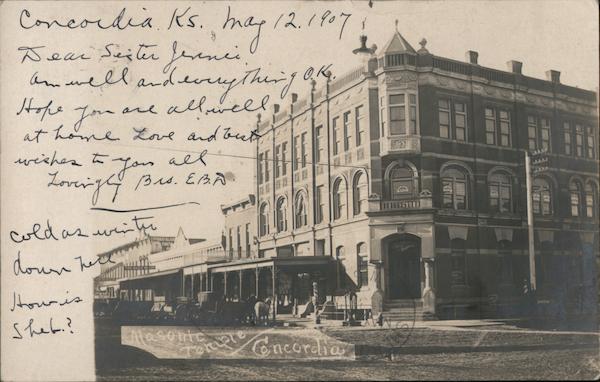 Concordia. Ks. May 12. 1907
Dear Sister Jennie.
Am well and everything O.K.
Hope you are all well
at home Love and best
wishes to you all
Lovingly Bro. E.B.A
cold as winter
down here
How is
Sheb.?
Masonic
Temple Concordia